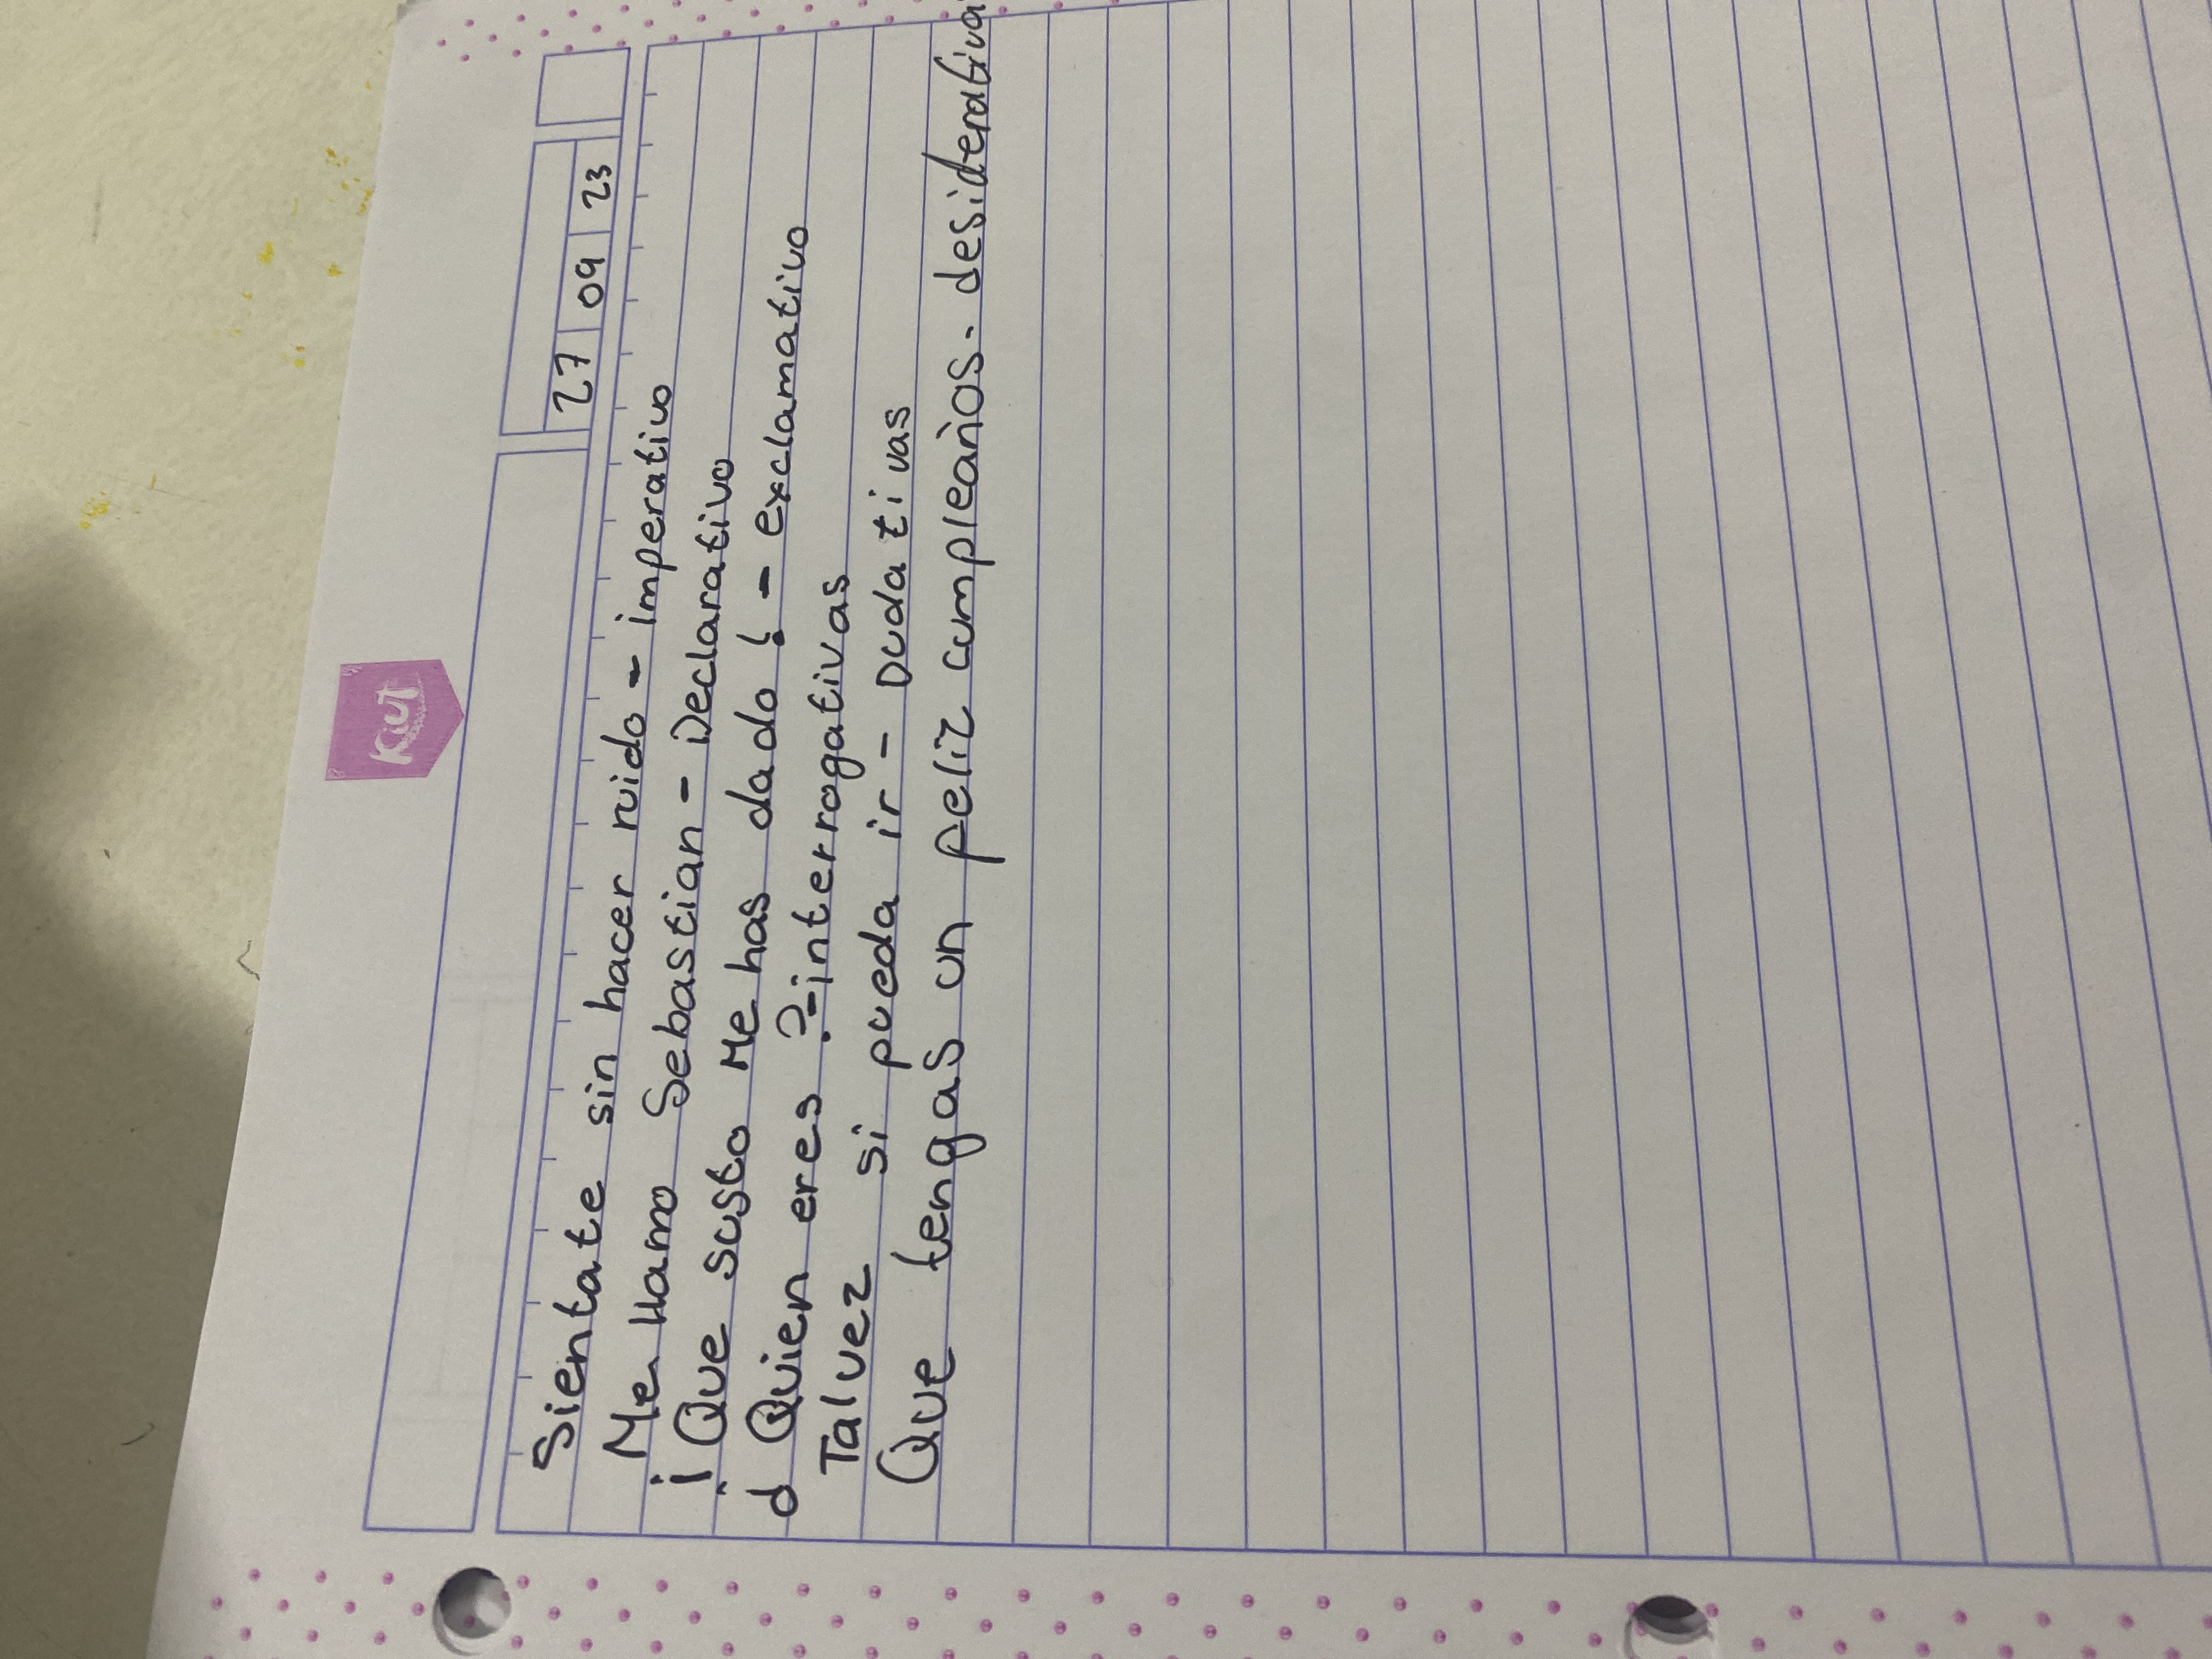 Kiut
27 09 23
Sientate sin hacer ruido - imperativo
Me llamo Sebastian - Declarativo
¡ Que susto Me has dado ! - exclamativo
¿ Quien eres ? - interrogativas
Talvez si pueda ir - Dudativas
Que tengas un feliz cumpleaños - desiderativa